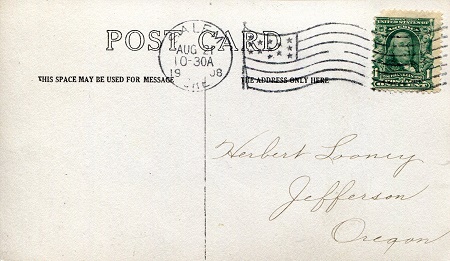 POST CARD
SALEM
AUG 21
10-30A
19 08
ORE
THIS SPACE MAY BE USED FOR MESSAGE
THE ADDRESS ONLY HERE
1
1
ONE CENT
Herbert Looney
Jefferson
Oregon